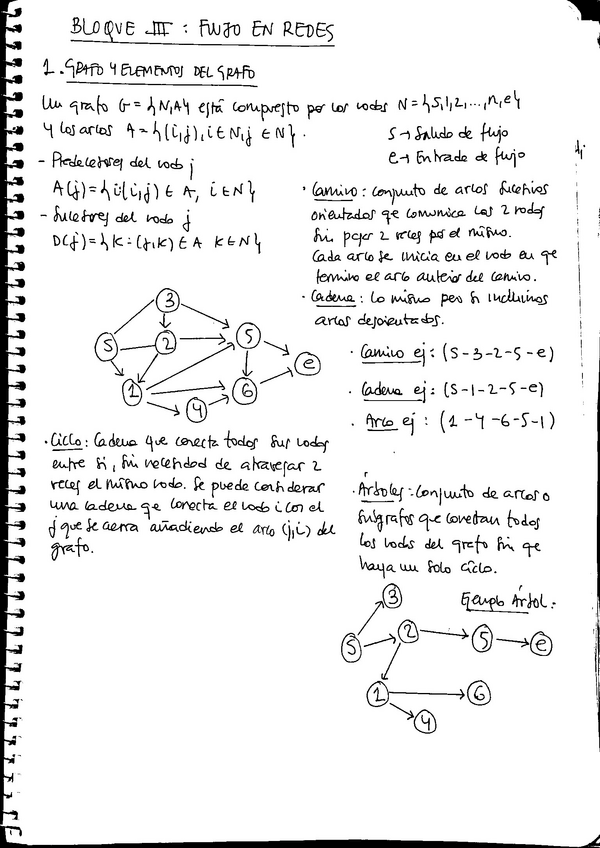 BLOQUE III : FLUJO EN REDES
1. GRAFO Y ELEMENTOS DEL GRAFO
Un grafo G = {N,A} está compuesto por los nodos N = {S,1,2,...,n,e}
y los arcos A = {(i,j), i ∈ N, j ∈ N}.
S → Salida de flujo
e → Entrada de flujo
- Predecesores del nodo j
A(j) = {i:(i,j) ∈ A, i ∈ N}
- Sucesores del nodo j
D(j) = {K:(j,K) ∈ A K ∈ N}
· Camino: conjunto de arcos sucesivos
orientados qe comunica los 2 nodos
sin pasar 2 veces por el mismo.
Cada arco se inicia en el nodo en qe
termino el arco anterior del camino.
· Cadena: Lo mismo pero si incluimos
arcos desorientados.
3
S
2
5
e
1
4
6
· Camino ej: (S-3-2-5-e)
· Cadena ej: (S-1-2-5-e)
· Arco ej: (1-4-6-5-1)
· Ciclo: Cadena que conecta todos sus nodos
entre si, sin necesidad de atravesar 2
veces el mismo nodo. Se puede considerar
una cadena qe conecta el nodo i con el
j que se cierra añadiendo el arco (j,i) del
grafo.
· Árboles: conjunto de arcos o
subgrafos que conectan todos
los nodos del grafo sin qe
haya un solo ciclo.
Ejemplo Árbol:
3
S
2
5
e
1
6
4